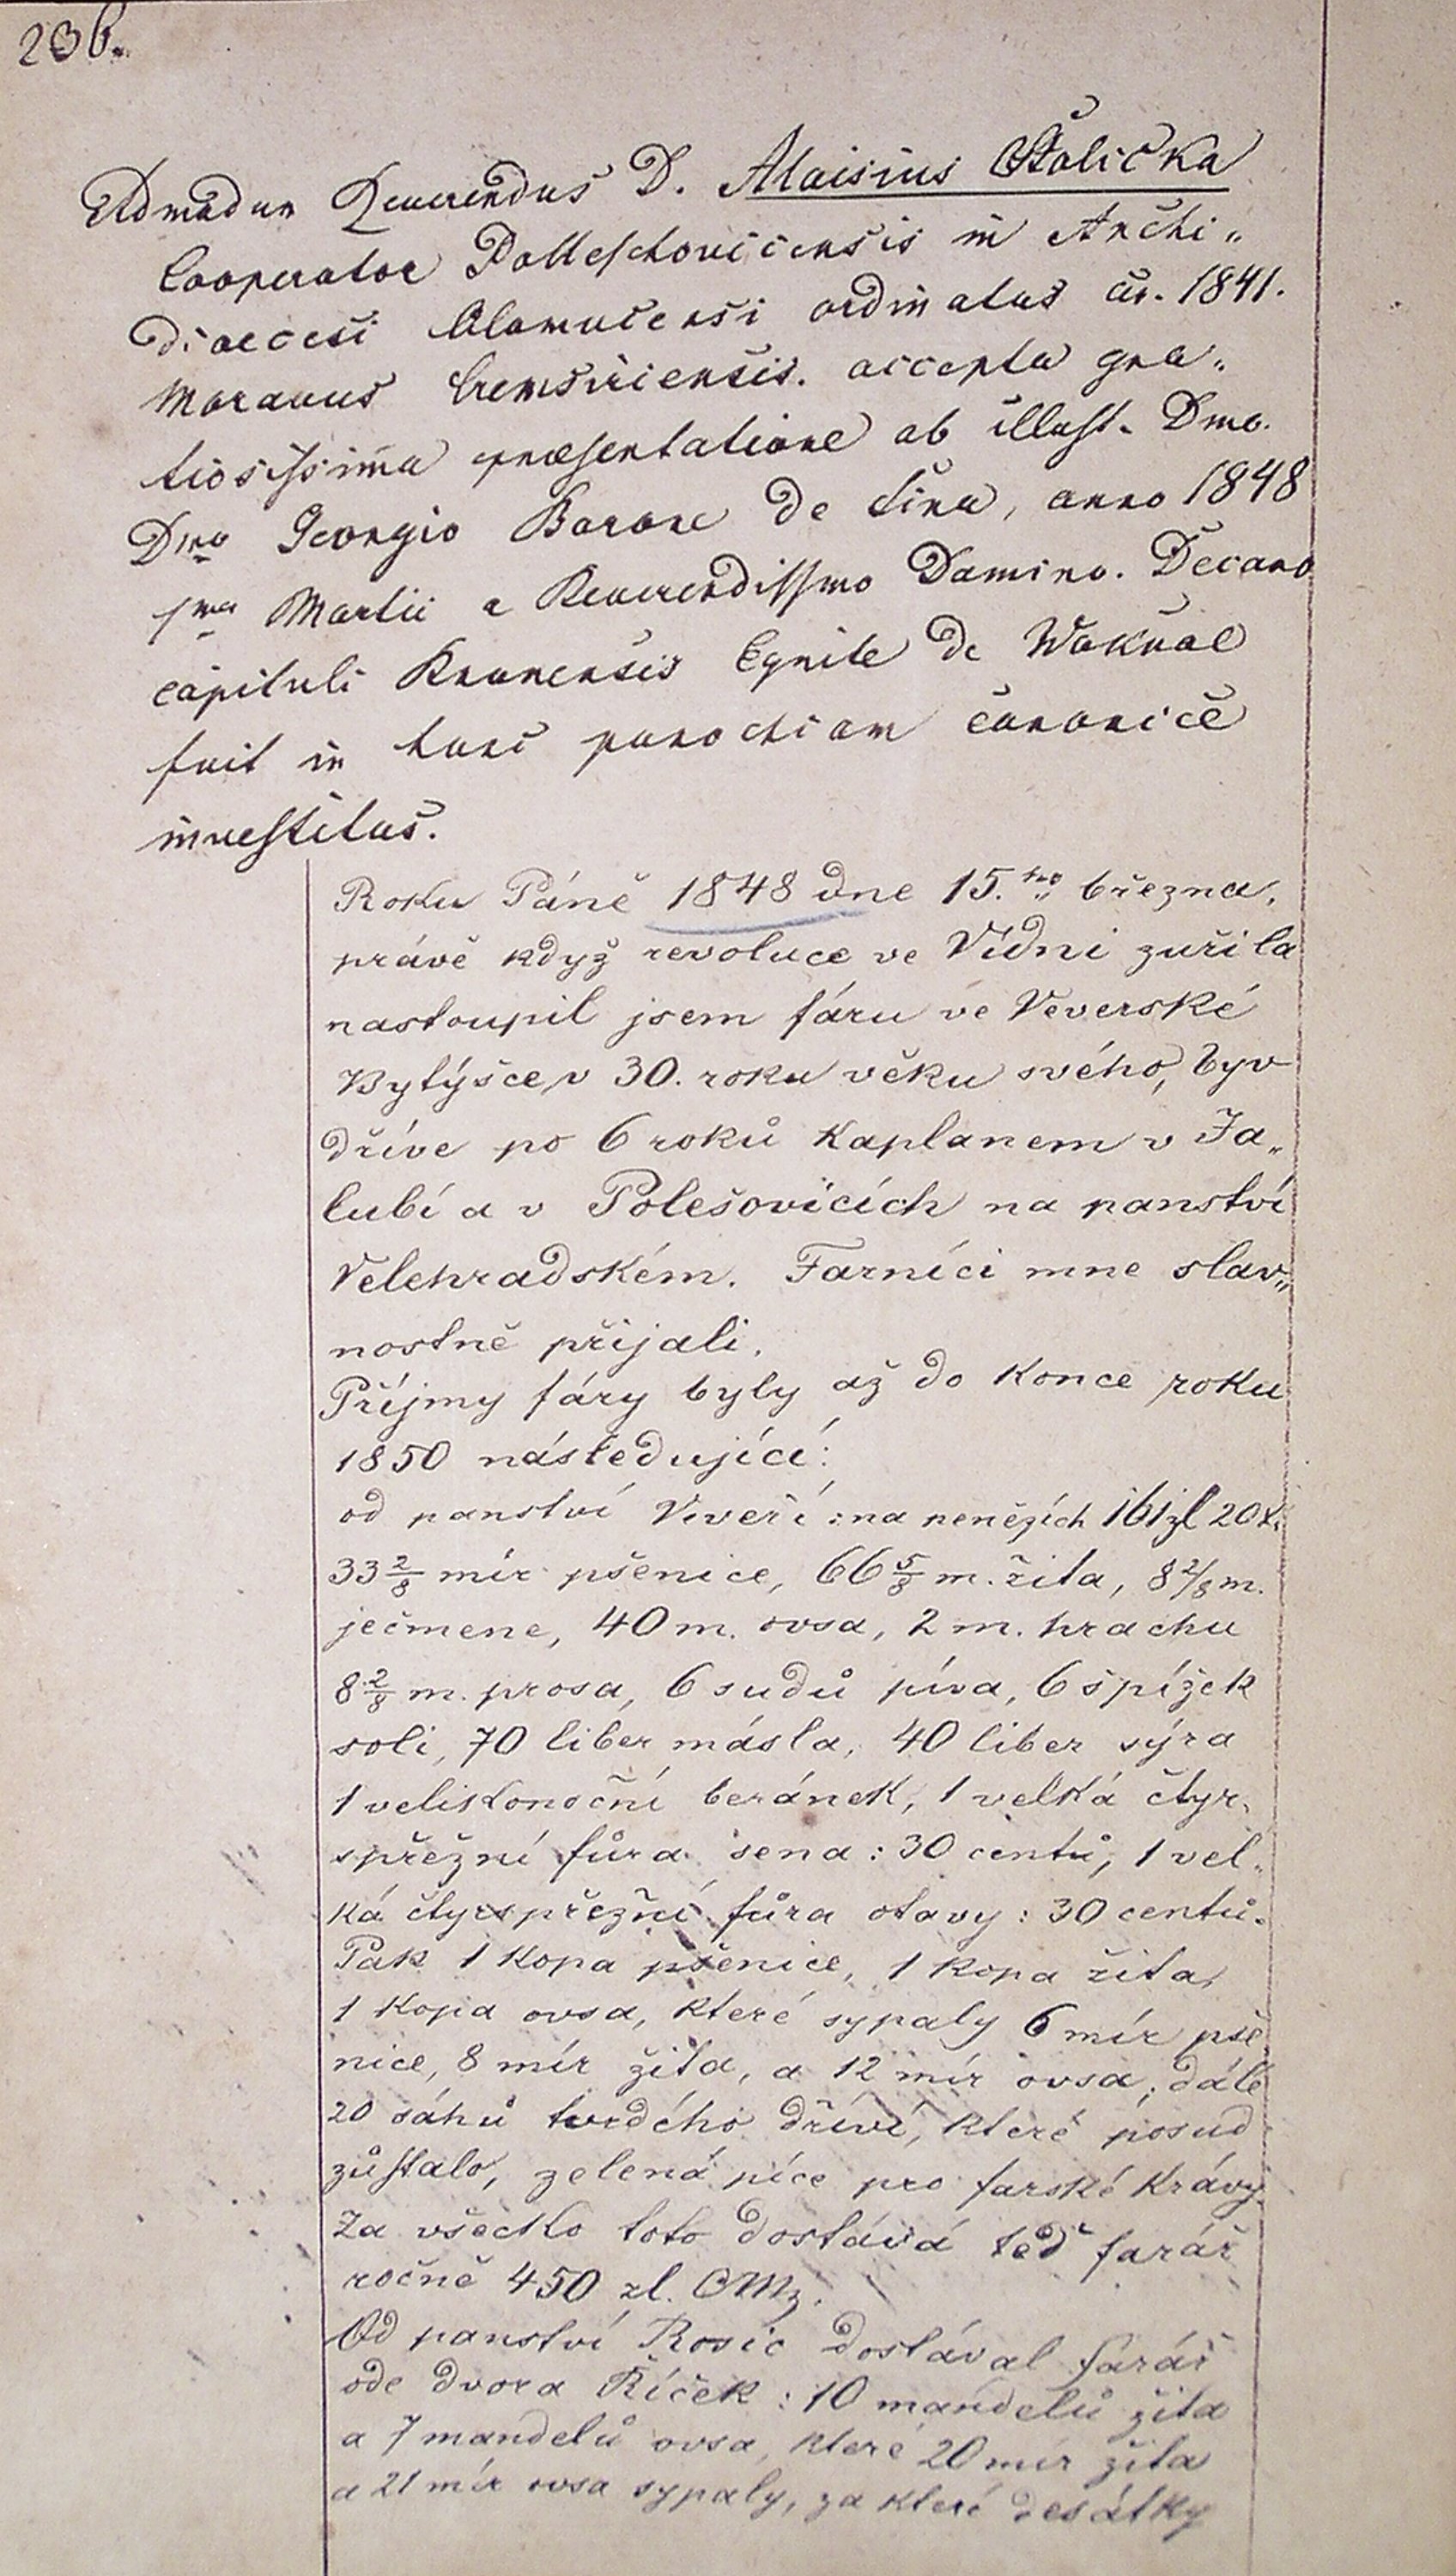 236.
Admodum Reverendus D. Aloisius Stolička
Cooperator Polleschovicensis in Archi„
dioecesi Olomucensi ordinatus an. 1841.
Moravus Cremsiriensis. accepta gra„
tiosissima praesentatione ab illust. Dmo.
Dno Georgio Barone de Sina, anno 1848
1ma Martii a Reverendissmo Domino. Decano
capituli Brunensis Equite de
fuit in hanc parochiam canonice
investitus.
Roku Páně 1848 dne 15.ho března,
právě když revoluce ve Vídni zuřila
nastoupil jsem fáru ve Veverské
Bytýšce v 30. roku věku svého, byv
dříve po 6 roků kaplanem v Ja„
lubí a v Polešovicích na panství
Velehradském. Farníci mne slav„
nostně přijali.
Příjmy fáry byly až do konce roku
1850 následující:
od panství Veveří: na penězích 161 zl 20 x.
33 2/8 mír pšenice, 66 5/8 m. žita, 8 2/8 m.
ječmene, 40 m. ovsa, 2 m. hrachu
8 2/8 m. prosa, 6 sudů píva, 6 špížek
soli, 70 liber másla, 40 liber sýra
1 velikonoční beránek, 1 velká čtyr„
spřežní fůra sena: 30 centů, 1 vel„
ká čtyrspřežní fůra otavy: 30 centů.
Pak 1 kopa pšenice, 1 kopa žita,
1 kopa ovsa, které sypaly 6 mír pše
nice, 8 mír žita, a 12 mír ovsa; dále
20 sáhů tvrdého dříví, které posud
zůstalo, zelená píce pro farské krávy.
Za všecko toto dostává teď farář
ročně 450 zl. CMz.
Od panství Rosic dostával farář
ode dvora Říček: 10 mandelů žita
a 7 mandelů ovsa, které 20 mír žita
a 21 mír ovsa sypaly, za které desátky